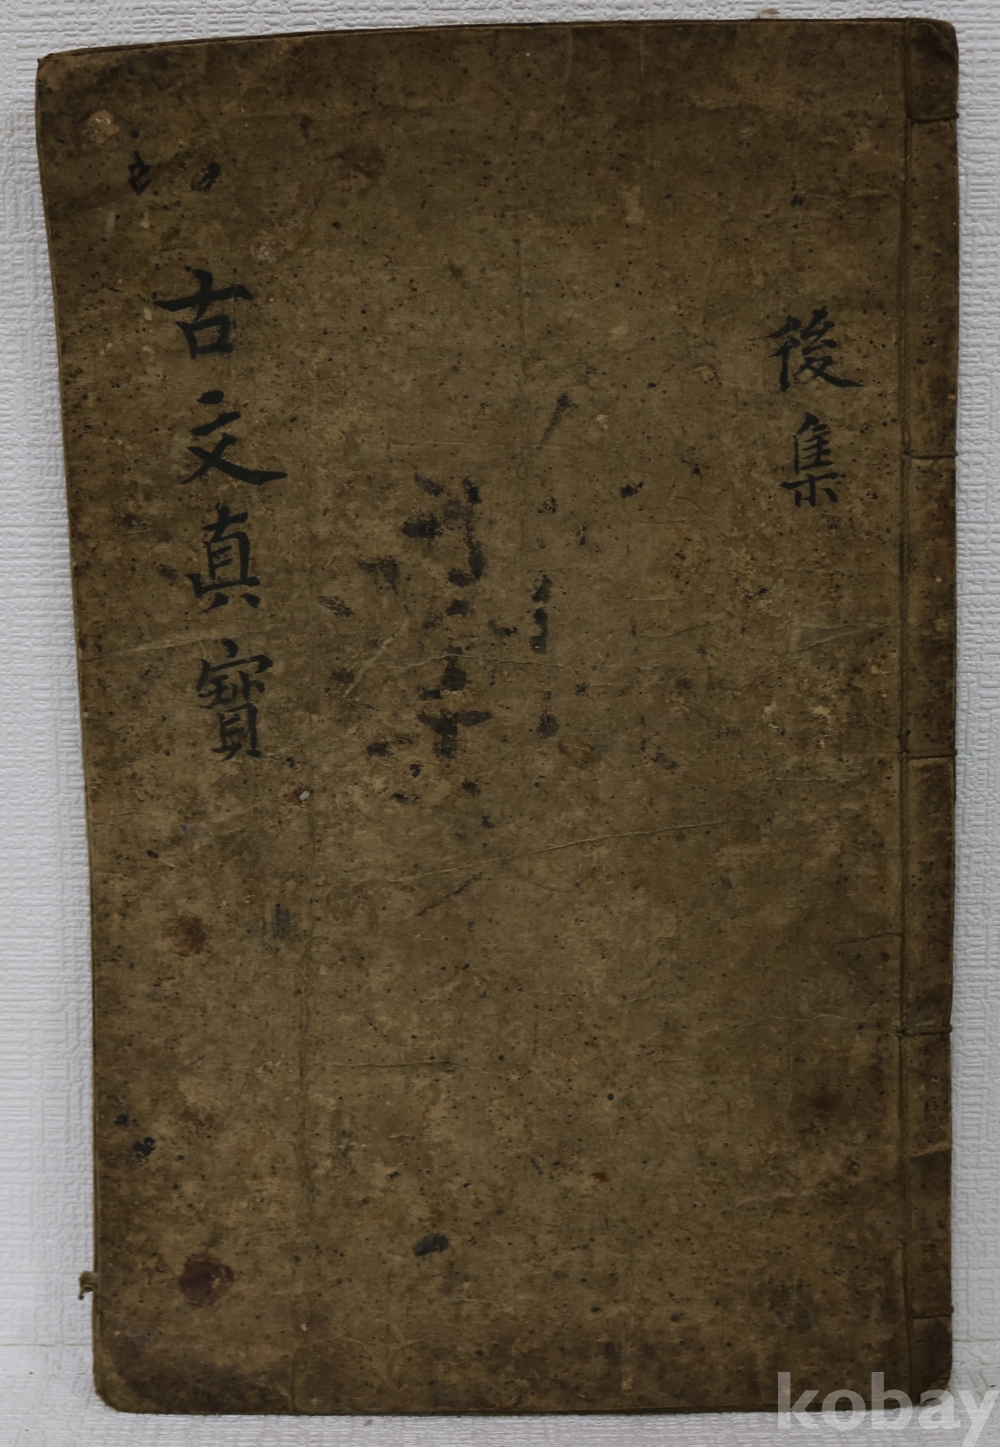 後集
古文真寶
kobay